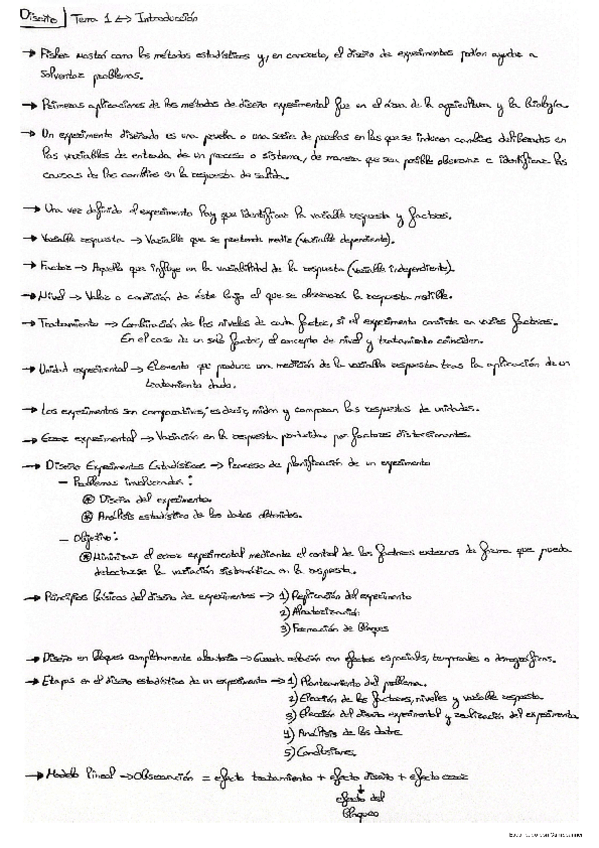 Diseño | Tema 1 <-> Introducción
→ Fisher mostró como los métodos estadísticos y, en concreto, el diseño de experimentos podían ayudar a
solventar problemas.
→ Primeras aplicaciones de los métodos de diseño experimental fue en el área de la agricultura y la biología.
→ Un experimento diseñado es una prueba o una serie de pruebas en las que se inducen cambios deliberados en
las variables de entrada de un proceso o sistema, de manera que sea posible observar e identificar las
causas de los cambios en la respuesta de salida.
→ Una vez definido el experimento hay que identificar la variable respuesta y factores.
→ Variable respuesta → Variable que se pretende medir (variable dependiente).
→ Factor → Aquello que influye en la variabilidad de la respuesta (variable independiente).
→ Nivel → Valor o condición de éste bajo el que se observará la respuesta medible.
→ Tratamiento → Combinación de los niveles de cada factor, si el experimento consiste en varios factores.
En el caso de un solo factor, el concepto de nivel y tratamiento coinciden.
→ Unidad experimental → Elemento que produce una medición de la variable respuesta tras la aplicación de un
tratamiento dado.
→ Los experimentos son comparativos, es decir, miden y comparan las respuestas de unidades.
→ Error experimental → Variación en la respuesta producida por factores distorsionantes.
→ Diseño Experimentos Estadísticos → Proceso de planificación de un experimento
– Problemas involucrados:
⊛ Diseño del experimento.
⊛ Análisis estadístico de los datos obtenidos.
– Objetivo:
⊛ Minimizar el error experimental mediante el control de los factores externos de forma que pueda
detectarse la variación sistemática en la respuesta.
→ Principios básicos del diseño de experimentos → 1) Replicación del experimento
2) Aleatorización
3) Formación de bloques
→ Diseño en bloques completamente aleatorio → Guarda relación con efectos espaciales, temporales o demográficos.
→ Etapas en el diseño estadístico de un experimento → 1) Planteamiento del problema.
2) Elección de los factores, niveles y variable respuesta.
3) Elección del diseño experimental y realización del experimento
4) Análisis de los datos
5) Conclusiones.
→ Modelo lineal → Observación = efecto tratamiento + efecto diseño + efecto error
↓
efecto del
bloque